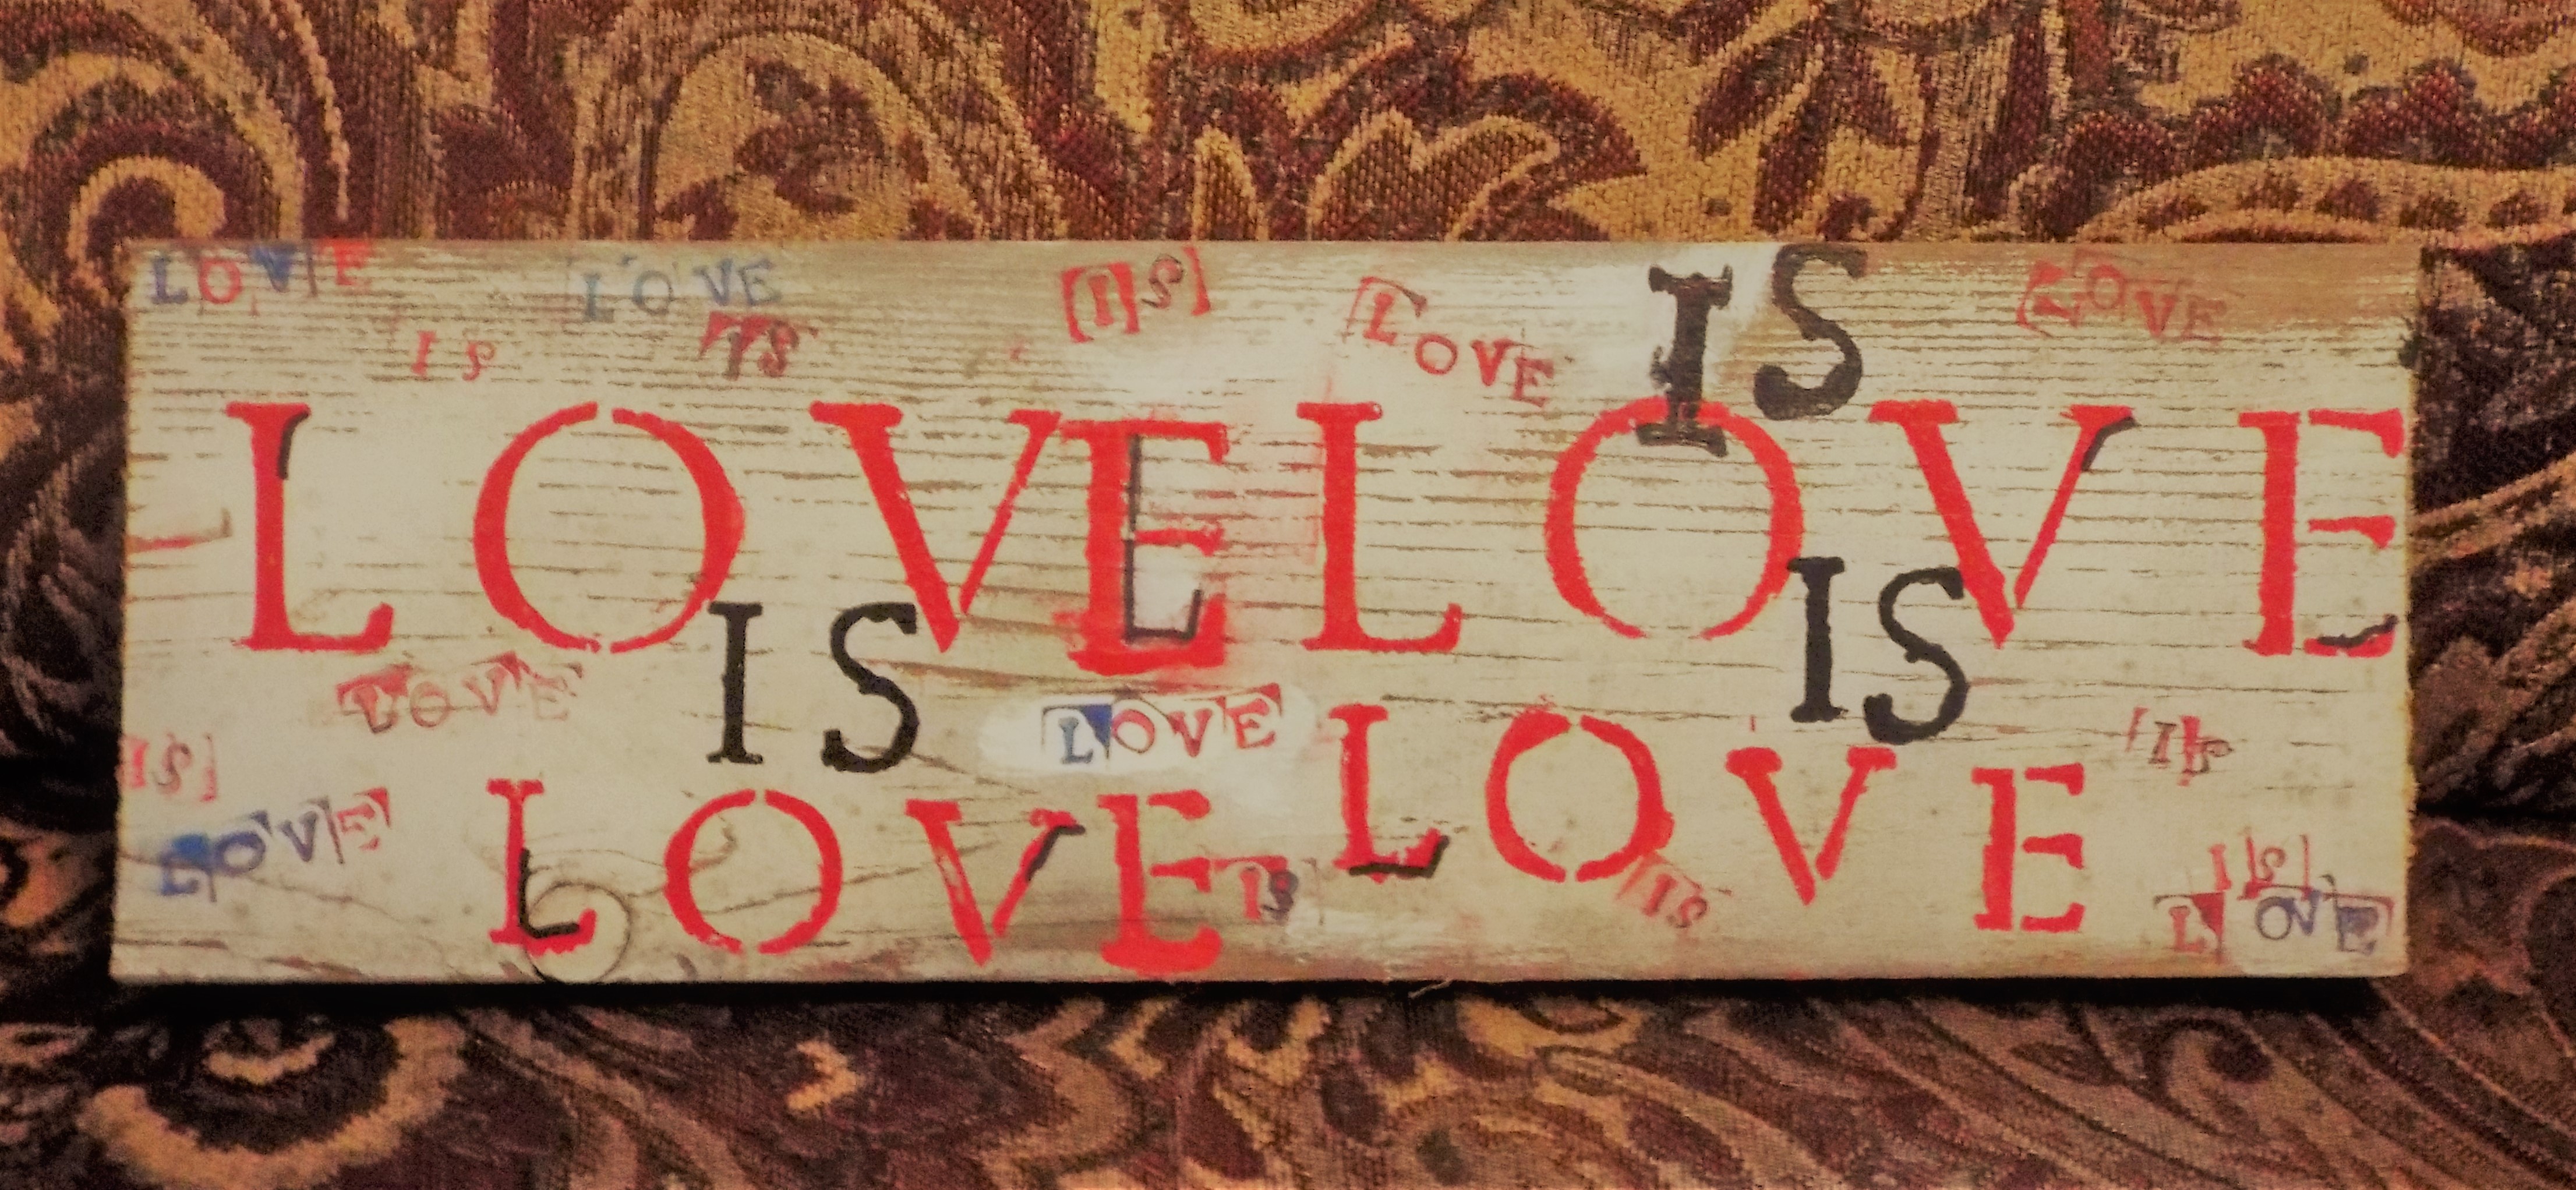 LOVE LOVE IS LOVE IS LOVE
IS IS
LOVE LOVE
LOVE IS LOVE IS
IS LOVE LOVE IS
LOVE LOVE IS IS IS
LOVE